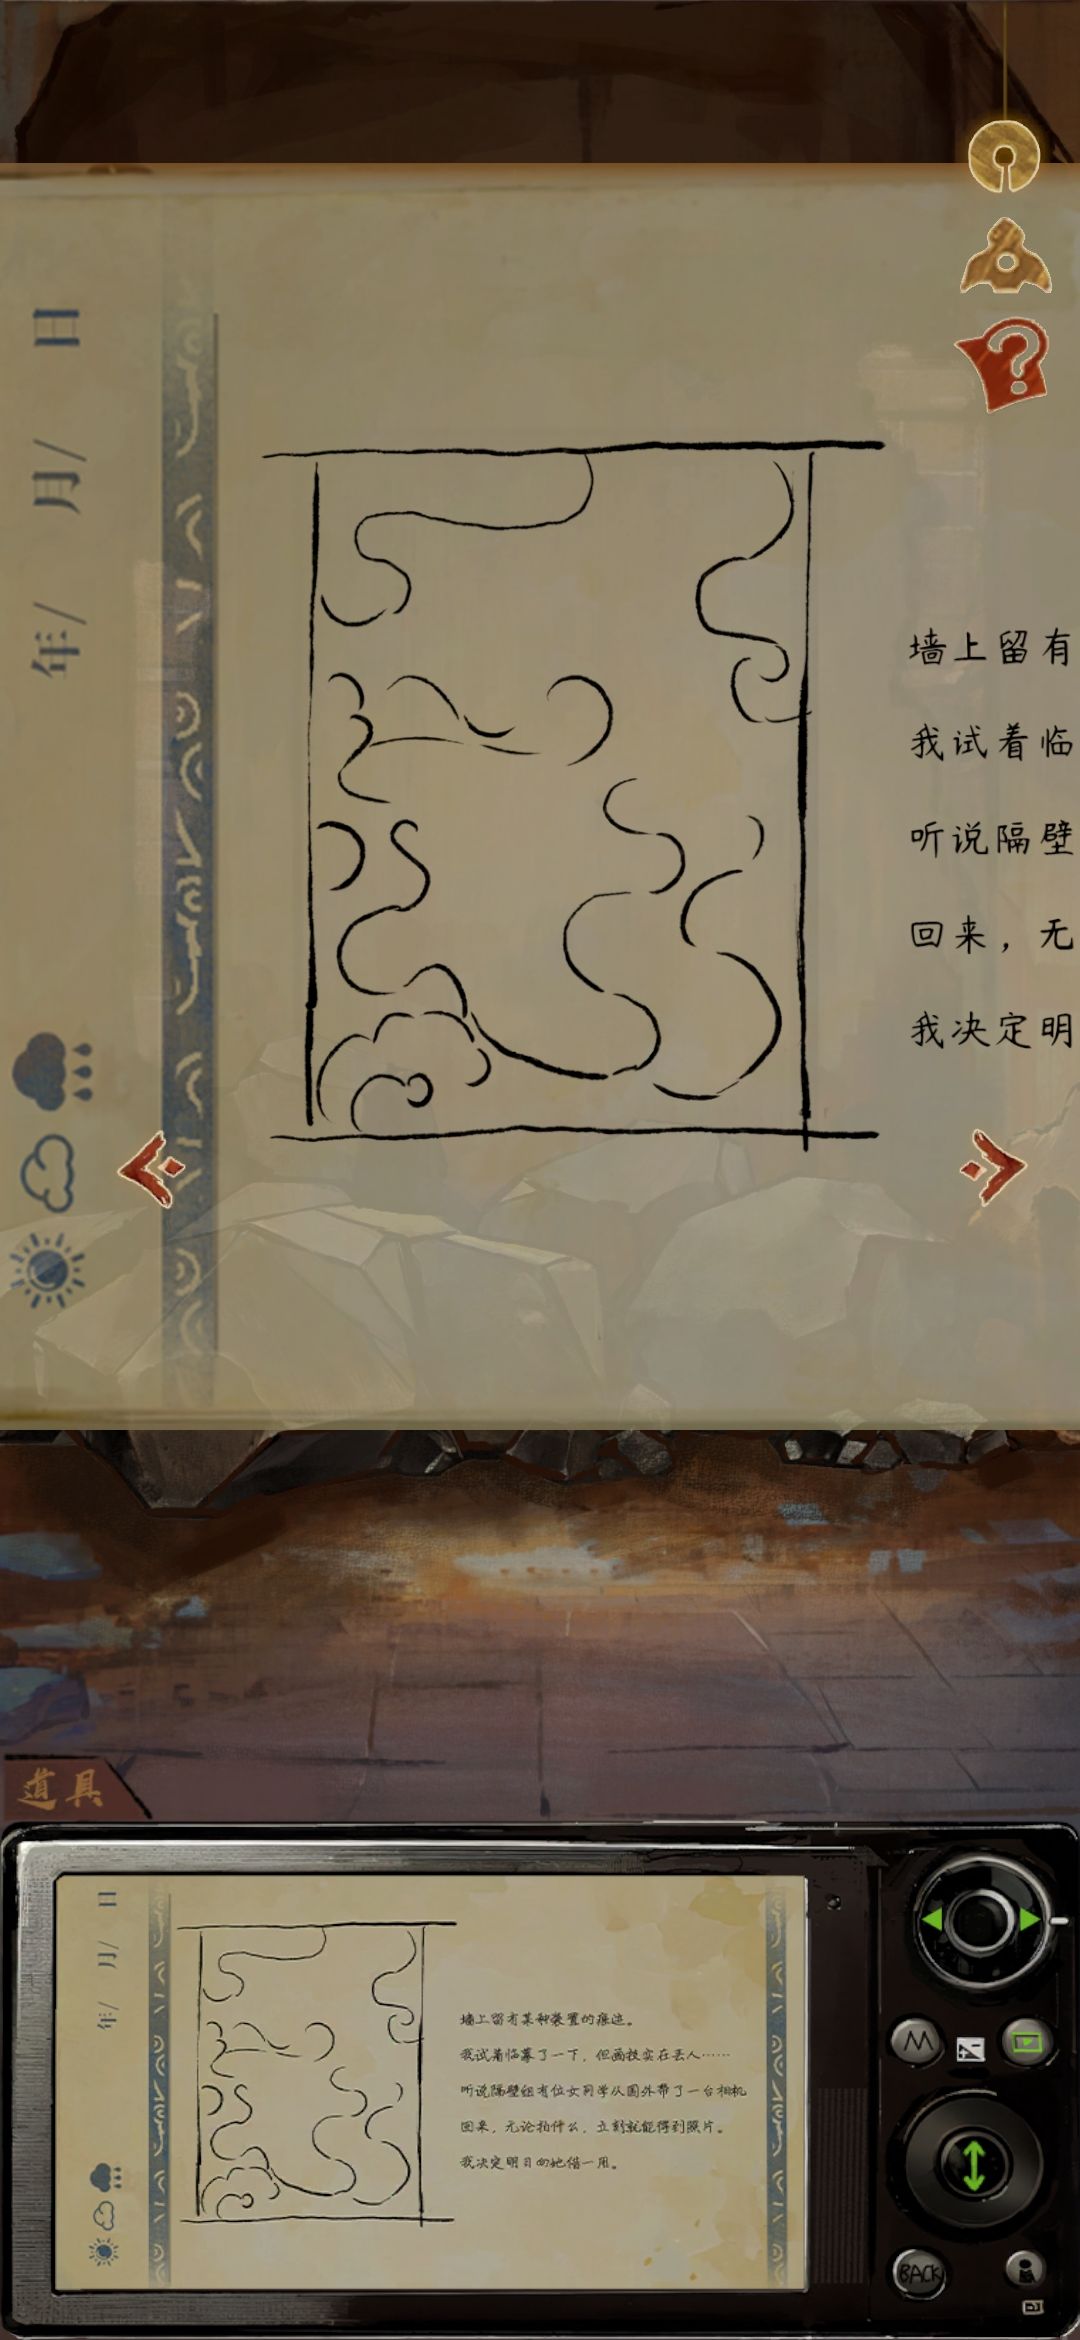 日
月/
年/
墙上留有
我试着临
听说隔壁
回来，无
我决定明
道具
日
月/
年/
墙上留有某种装置的痕迹。
我试着临摹了一下，但画技实在丢人……
听说隔壁组有位女同学从国外带了一台相机
回来，无论拍什么，立刻就能得到照片。
我决定明日向她借一用。
BACK